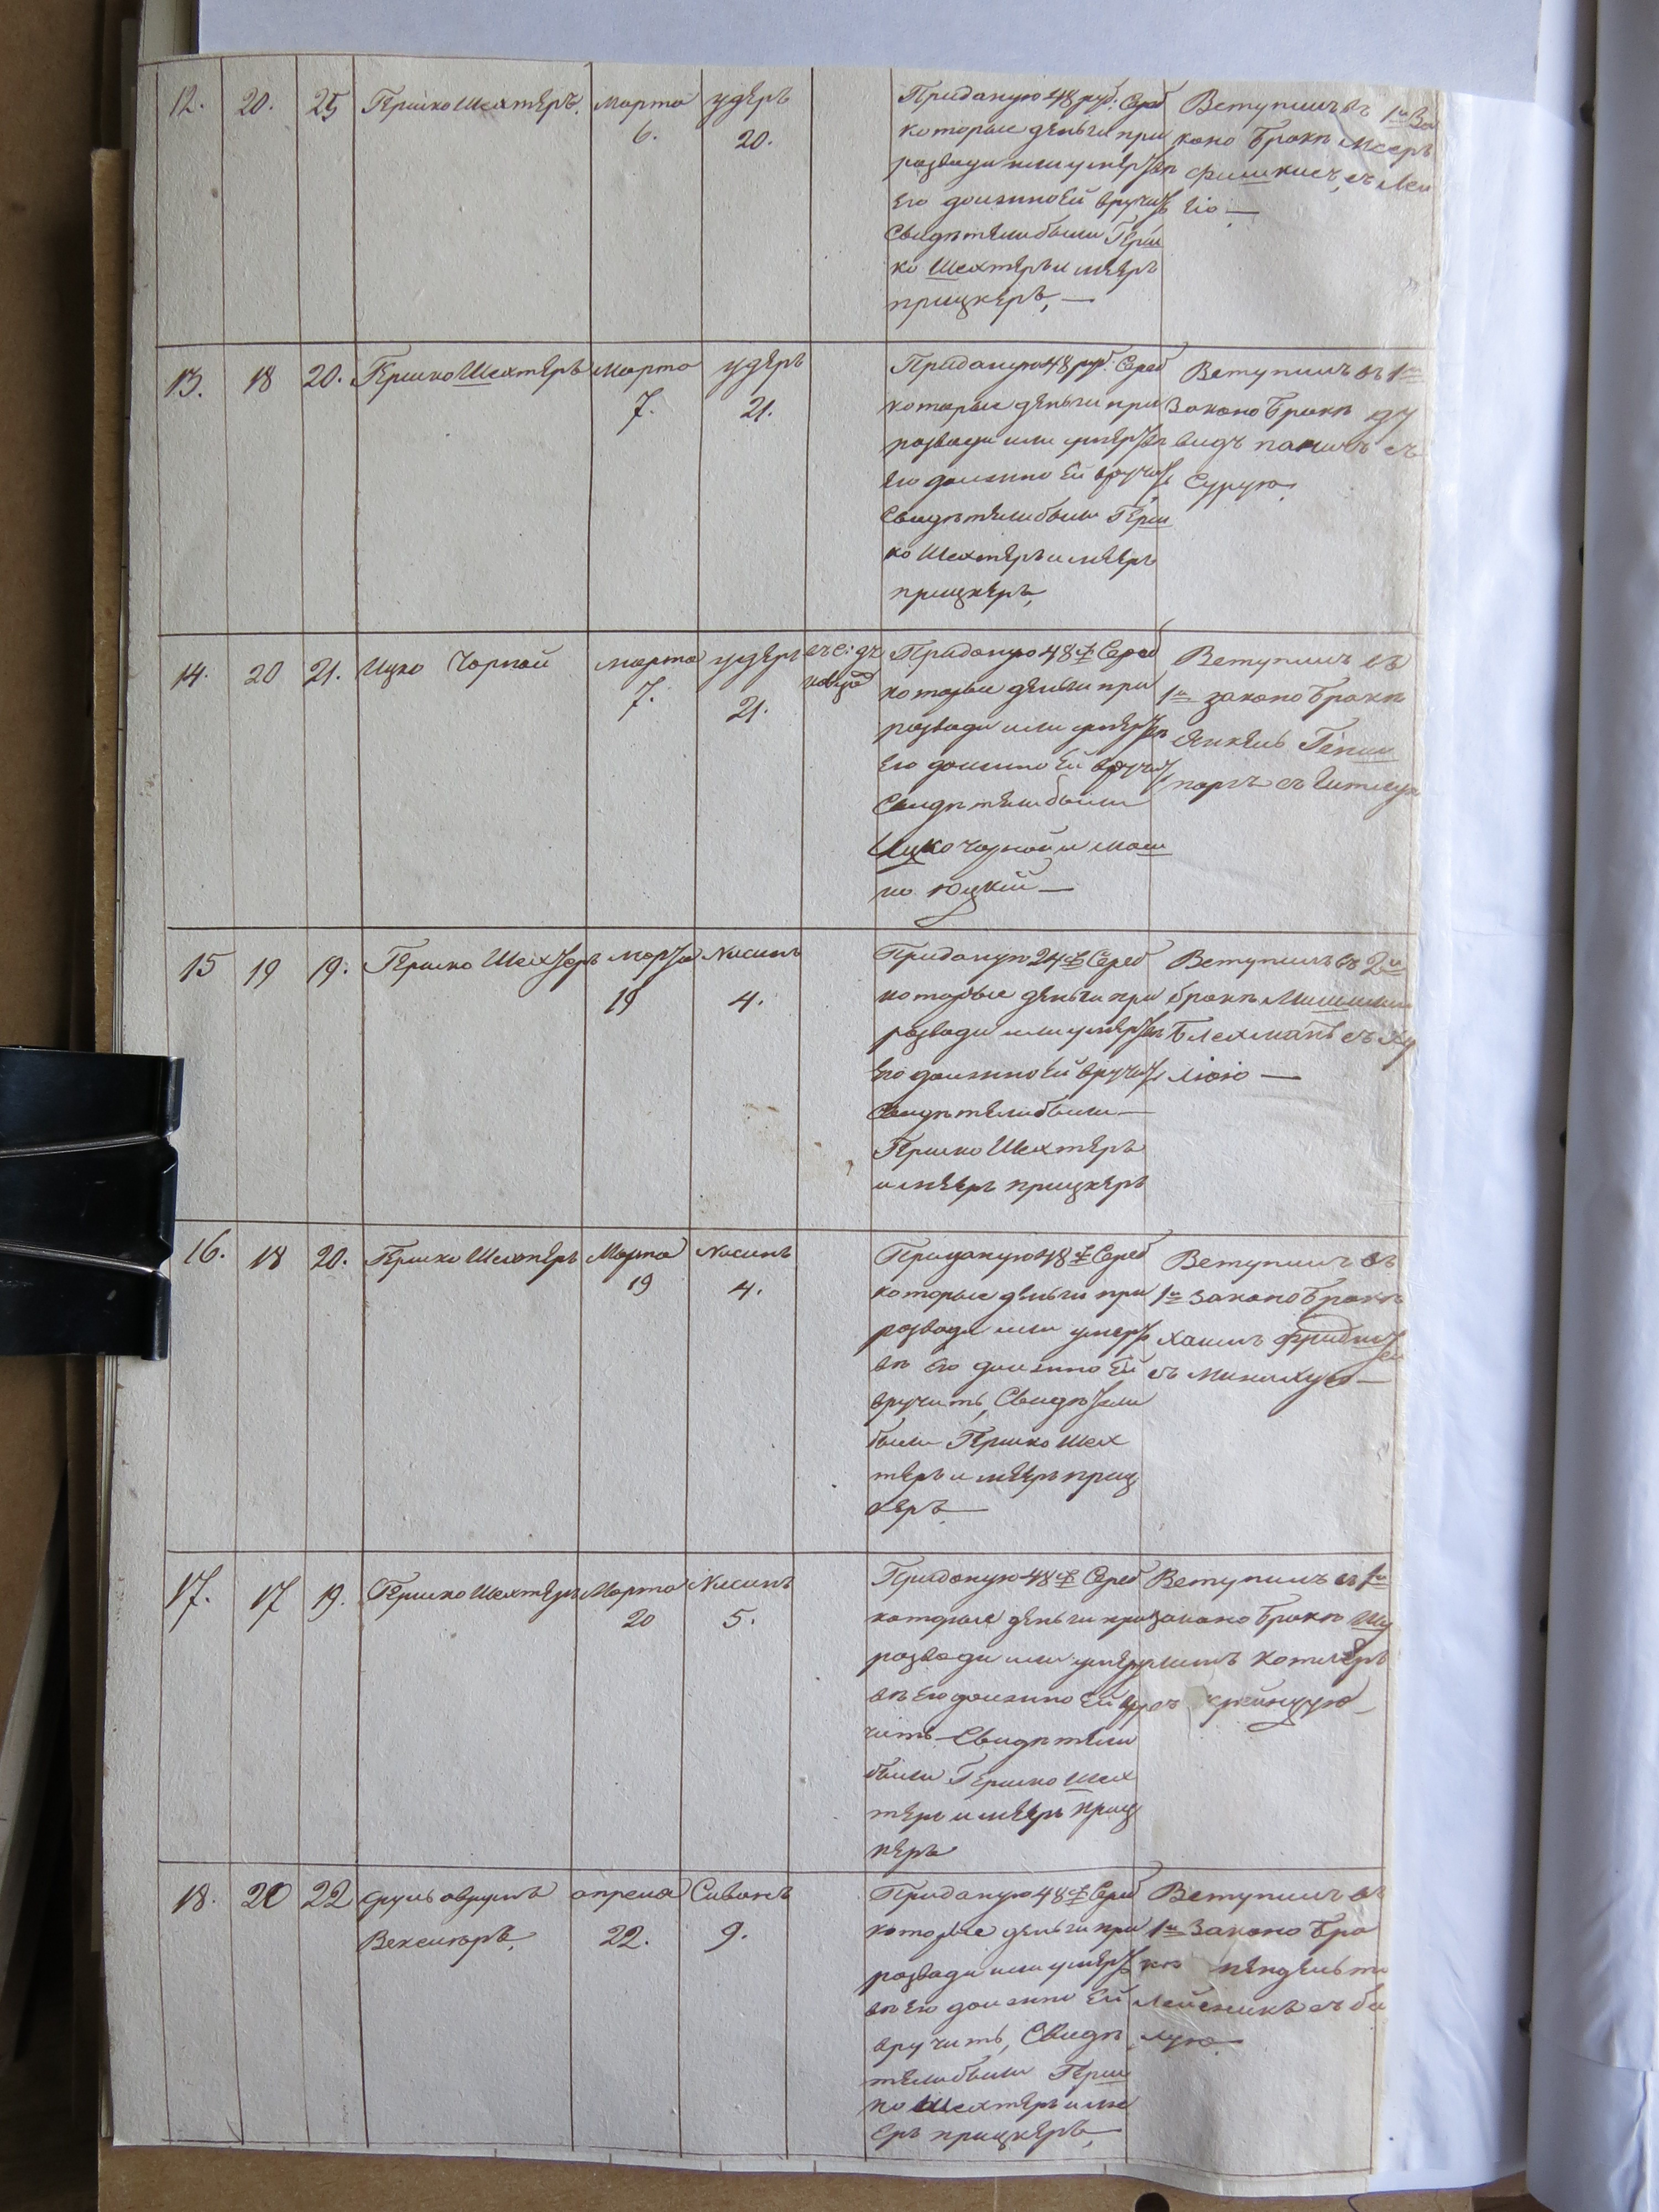 12. 20. 25 Гершко Шехтеръ. Марта удеръ
6. 20.
Приданую 48 руб: Сереб
которые деньги при
розводи или умертвъ
Его должно Ей вручить
Свидѣтели были Герш
ко Шехтеръ и мееръ
прицкеръ, —
Вступилъ въ 1й За
коно бракъ Мееръ
съ Леи
Ею —
13. 18 20. Гершко Шехтеръ Марта удеръ
7. 21.
Приданую 48 руб: Сереб
которые деньги при
розводи или умертвъ
Его должно Ей вручить
Свидѣтели были Герш
ко Шехтеръ и мееръ
прицкеръ,
Вступилъ въ 1й
Законо бракъ ду
видъ съ
Сурую.
14. 20 21. Ицко Чорной марта удеръ
7. 21.
Приданую 48 Сереб
которые деньги при
розводи или умертвъ
Его должно Ей вручить
Свидѣтели были
Ицко Чорной и Мош
ко Юцкій —
Вступилъ въ
1й законо бракъ
Янкель
съ
15 19 19. Гершко Шехтеръ Марта Нисинъ
19 4.
Приданую 24 Сереб
которые деньги при
розводи или умертвъ
Его должно Ей вручить
Свидѣтели были —
Гершко Шехтеръ
и мееръ прицкеръ
Вступилъ въ 2й
бракъ
Блехманъ съ Ху
лiою —
16. 18 20. Гершко Шехтеръ Марта Нисинъ
19 4.
Приданую 48 Сереб
которые деньги при
розводи или умерт
въ Его должно Ей
вручить, Свидѣтели
были Гершко Шех
теръ и мееръ приц
керъ
Вступилъ въ
1й законо бракъ
Хаимъ
съ Минихую —
17. 17 19. Гершко Шехтеръ Марта Нисинъ
20 5.
Приданую 48 Сереб
которые деньги при
розводи или умерт
въ Его должно Ей вру
чить Свидѣтели
были Гершко Шех
теръ и мееръ приц
керъ
Вступилъ въ 1й
законо бракъ Шу
лимъ Котляръ
съ крейнцую
18. 20 22 сруль аврумъ апреля Сиванъ
Векслюръ, 22. 9.
Приданую 48 Сереб
которые деньги при
розводи или умерт
въ Его должно Ей
вручить, Свидѣ
тели были Герш
ко Шехтеръ и ме
еръ прицкеръ,
Вступилъ въ
1й Законо бра
къ
съ бей
лую.